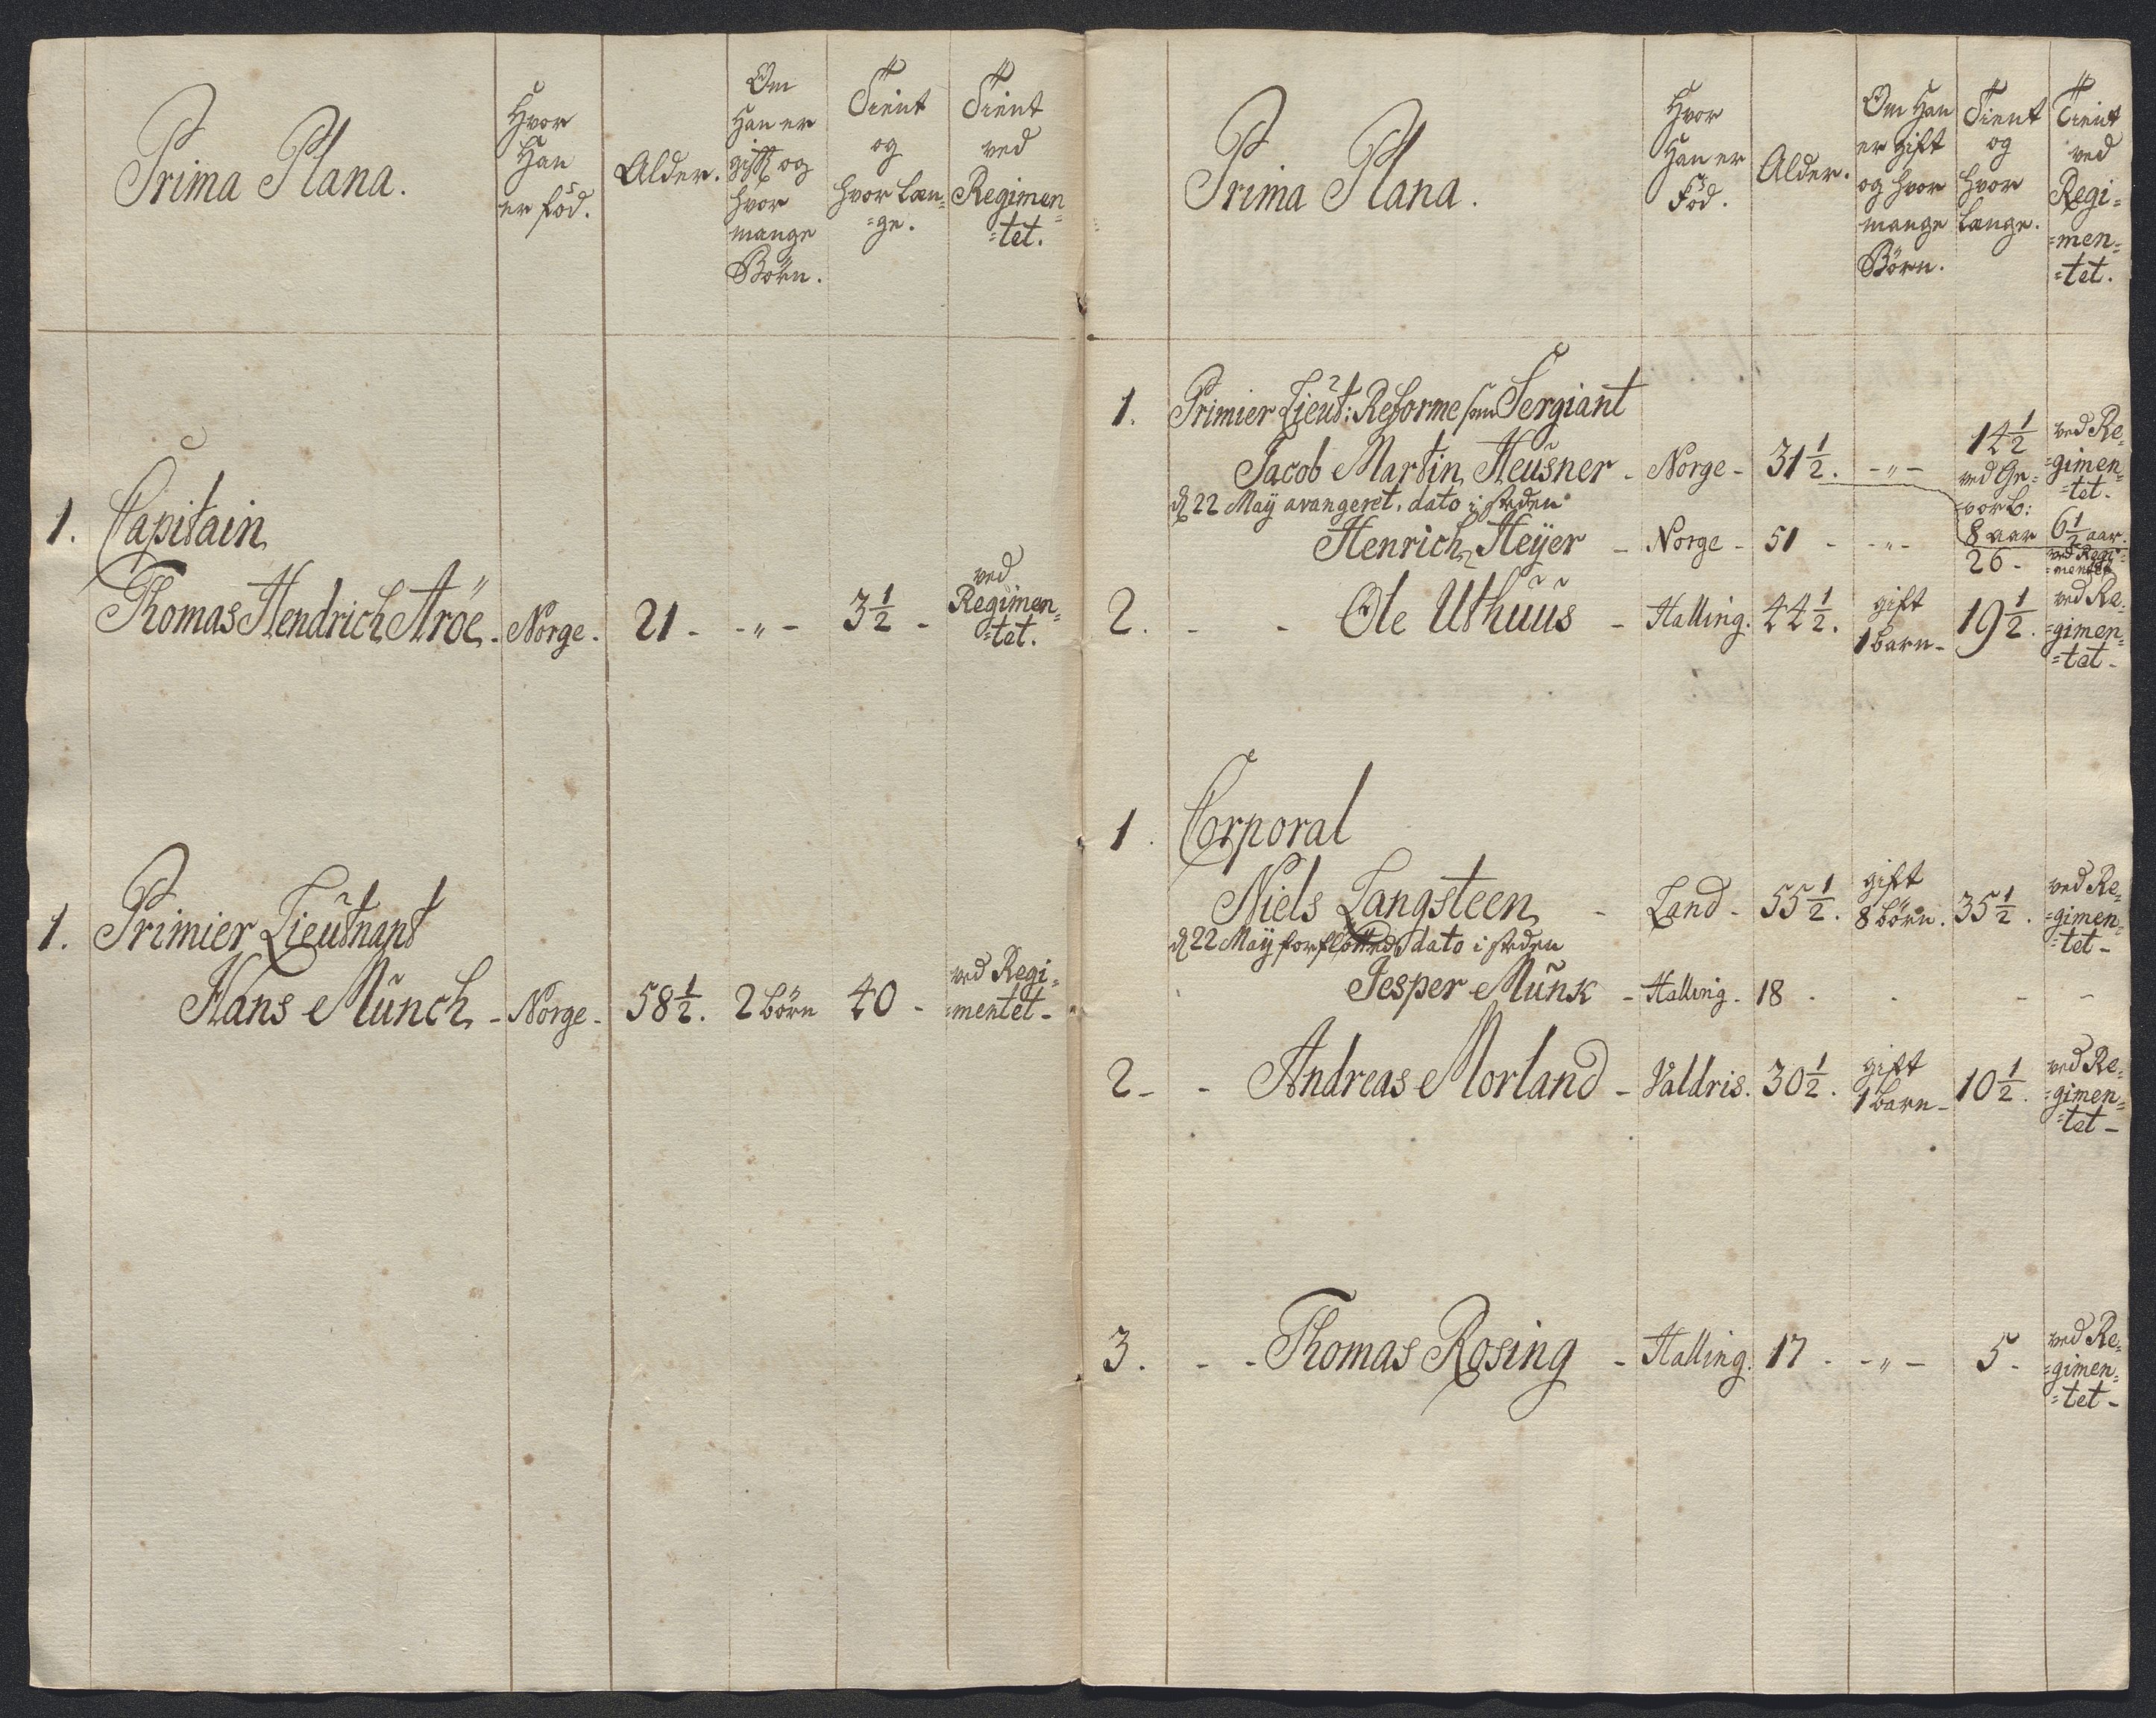 Prima Plana.
Hvor
Han
er föd.
Alder.
Om
Han er
gift og
hvor
mange
Börn.
Tient
og
hvor læn=
=ge.
Tient
ved
Regimen=
=tet.
1. Capitain
Thomas Hendrich Aröe - Norge. 21 - -"- 3½ - ved
Regimen=
=tet.
1. Primier Lieutnant
Hans Münch - Norge - 58½. 2 börn 40 - ved Regi=
=mentet -
Prima Plana.
Hvor
Han er
Föd.
Alder.
Om Han
er gift
og hvor
mange
Börn.
Tient
og
hvor
længe.
Tient
ved
Regi=
=men=
=tet.
1. Primier Lieut: Reforme som Sergiant
Jacob Martin Heusner - Norge - 31½. -"- 14½
ved Ge=
=vorb:
8 aar
ved Re=
gimen=
=tet.
6½ aar.
d 22 May arangeret. dato i steden
Henrich Heyer - Norge - 51 - -"- 26 - ved Regi=
=mentet
2. - - Ole Uthuus - Halling. 44½. gift
1 barn - 19½. ved Re=
=gimen=
=tet -
1. Corporal
Niels Langsteen - Land - 55½. gift
8 börn. 35½. ved Re=
=gimen=
=tet -
d 22 May forflötted dato i steden
Jesper Munk - Halling - 18 . . - -
2 - - Andreas Morland - Valdris. 30½. gift
1 barn - 10½. ved Re=
=gimen=
=tet -
3. - - Thomas Rosing - Halling. 17 - -"- 5 - ved Re=
=gimen=
=tet -